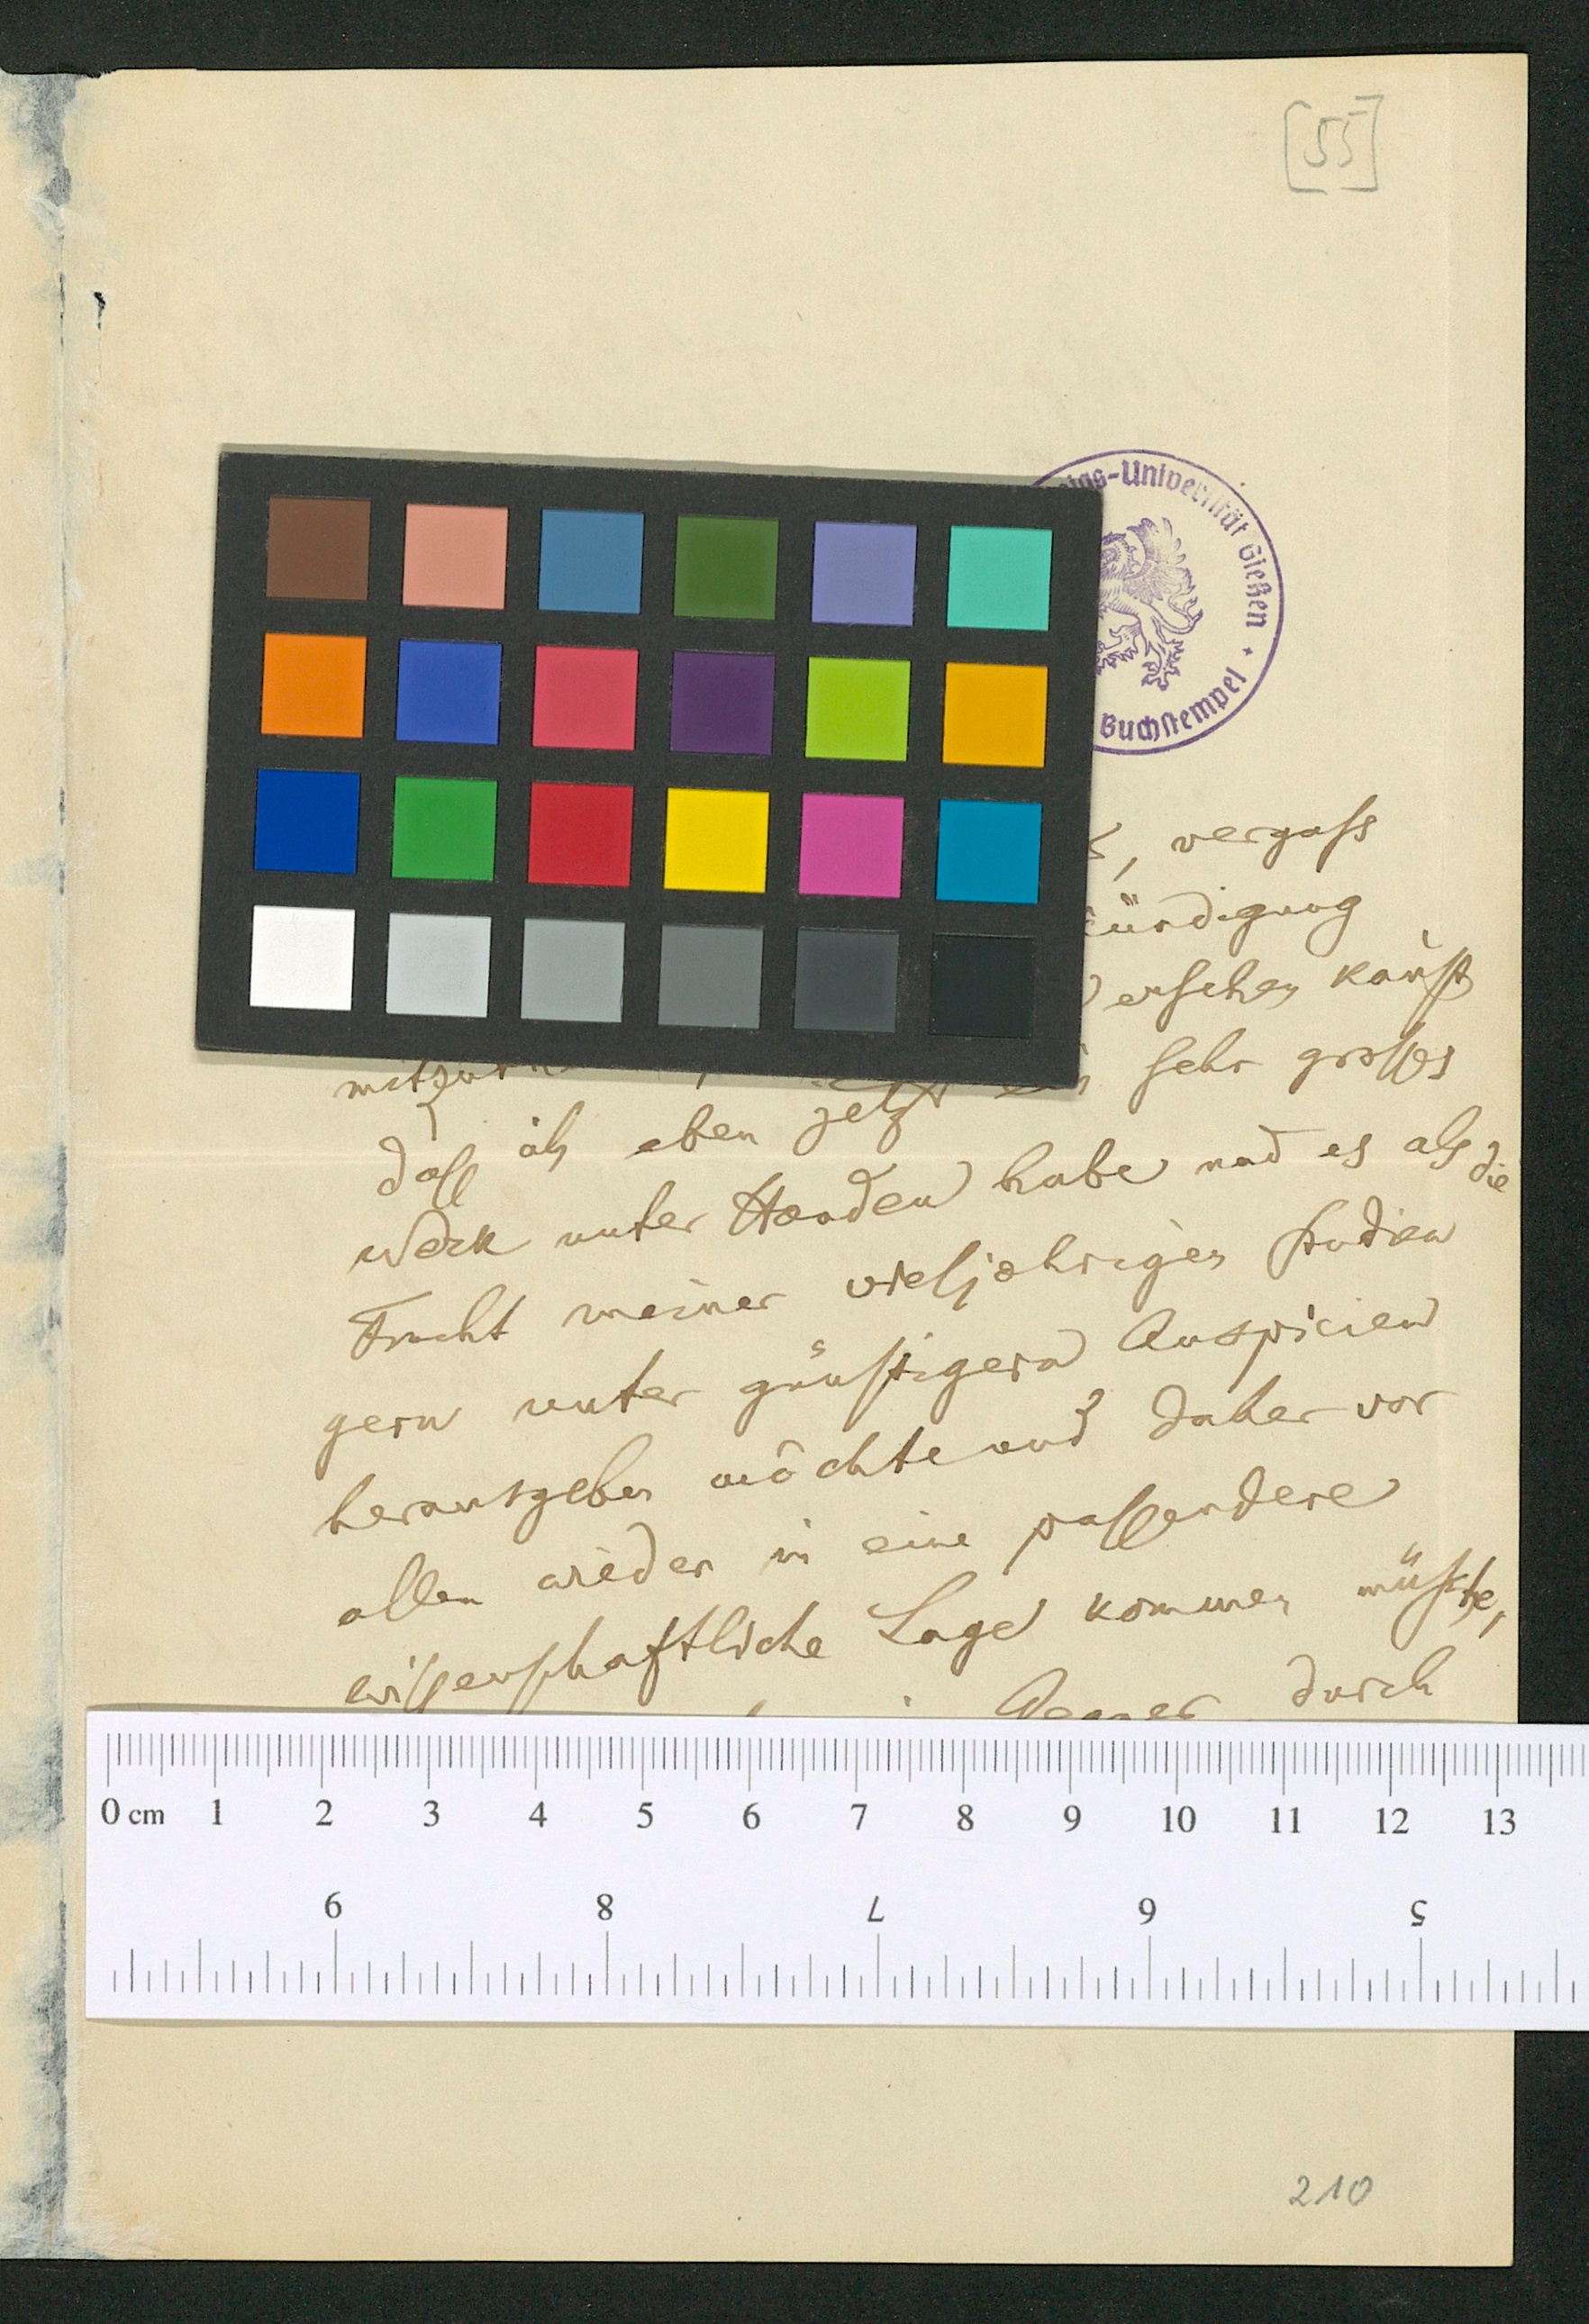 [55]
Universität Gießen
Buchstempel
, vergaß
ündigung
ersehen kannst
sehr großes
daß ich eben jetzt
Werk unter Händen habe und es als die
Frucht meiner vieljährigen Studien
gern unter günstigern Auspicien
herausgeben möchte und daher vor
allen wieder in eine passendere
wissenschaftliche Lage kommen müßte,
durch
0 cm 1 2 3 4 5 6 7 8 9 10 11 12 13
9 8 7 6 5
210